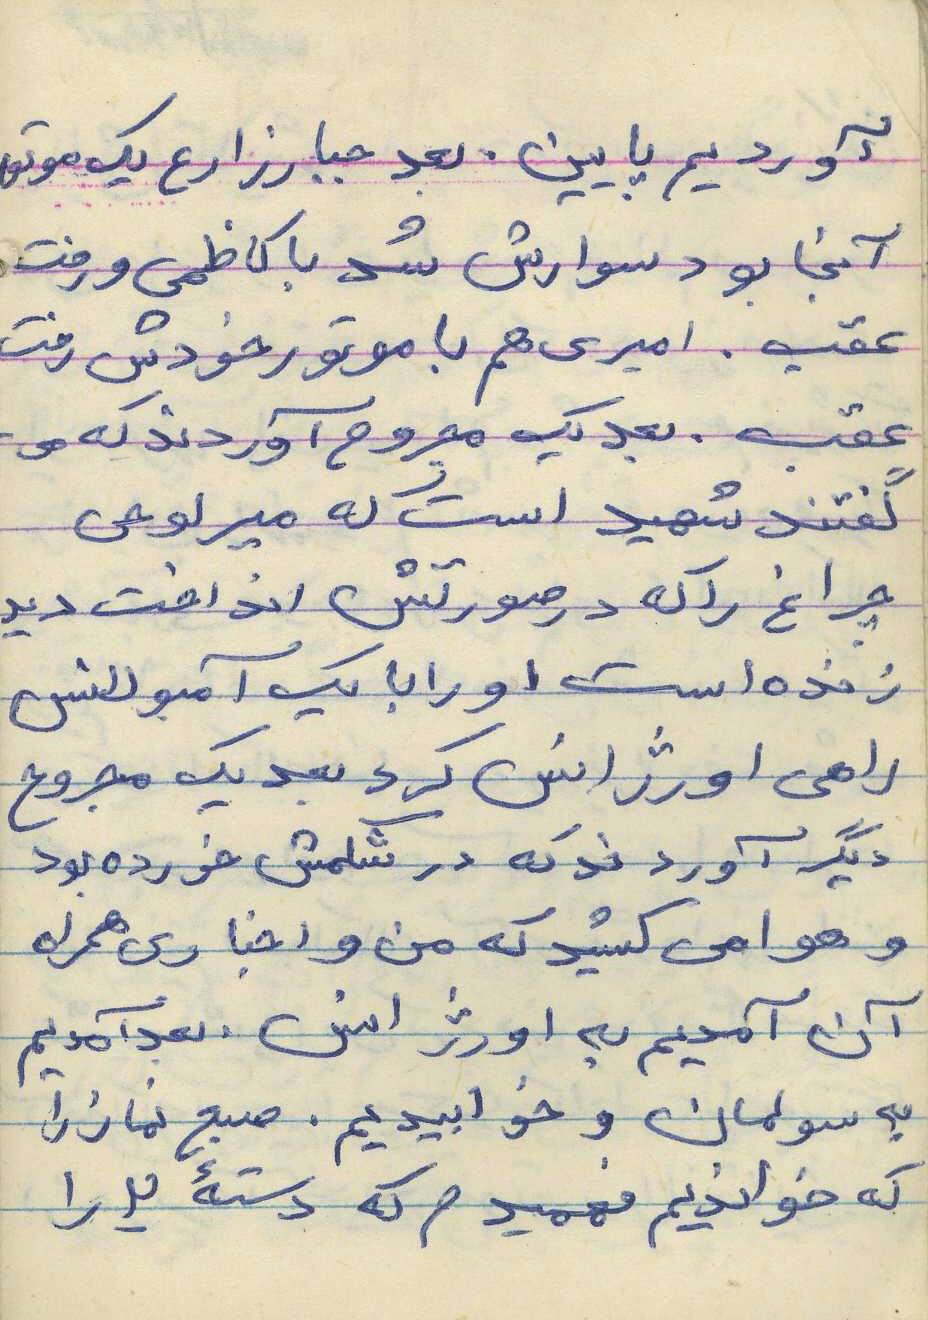 آوردیم پایین. بعد جبارزارع یک موتور
آنجا بود سوارش شد با کاظمی و رفت
عقب. امیری هم با موتور خودش رفت
عقب. بعد یک مجروح آوردند که می-
گفتند شهید است که میرلوحی
چراغ را که در صورتش انداخت دید
زنده است او را با یک آمبولانس
راهی اورژانس کرد بعد یک مجروح
دیگر آوردند که در شکمش خورده بود
و هوا می کشید که من و اخباری همراه
آن آمدیم به اورژانس. بعد آمدیم
به سولمان و خوابیدیم. صبح نماز را
که خواندیم فهمیدم که دستهٔ را